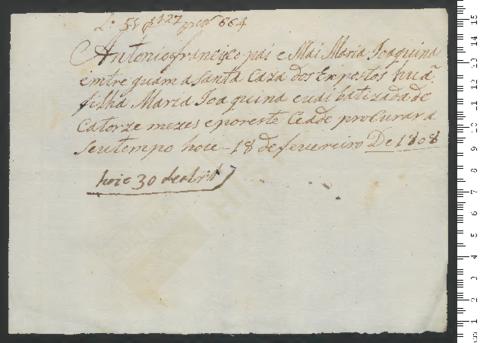 L.º 55 f 127 nº 664
Antonio francisco pai e Mai Maria Joaquina
emtreguam a Santa Caza dos Expostos huã
filha Maria Joaquina e vai batizada de
Catorze mezes e por este Cedade procurar a
Seu tempo hoie 18 de fevereiro De 1808
hoie 30 de abril